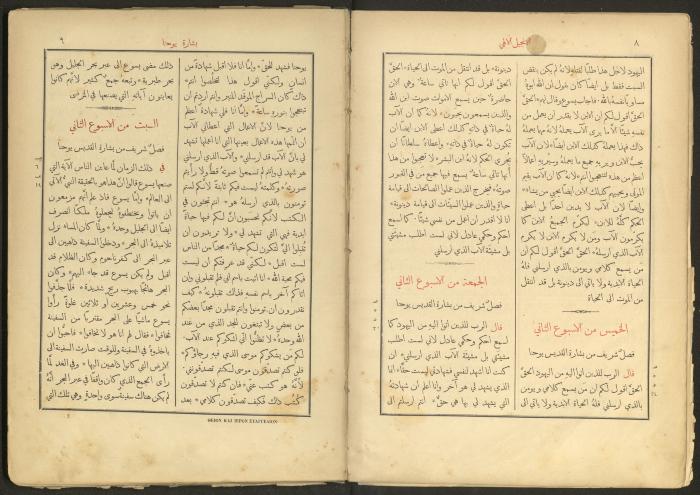 ٨
الانجيل الالهي
اليهود لاجل هذا طلبًا لقتلهِ لانهُ لم يكن ينقض
السبت فقط بل ايضًا كان يقول ان الله ابوهُ
مساويًا نفسهُ بالله * فاجاب يسوع وقال لهم الحقَّ
الحقَّ اقول لكم ان الابن لا يقدر ان يعمل من
نفسهِ شيئًا الَّا ما يرى الآب يعملهُ لانهُ مهما يعملهُ
ذاك فهذا يعملهُ كذلك الابن ايضًا لان الآب
يحبُّ الابن ويريهِ جميع ما يعملهُ وسيريهِ اعمالًا
اعظم من هذه لتتعجبوا انتم * لانهُ كما ان الآب يقيم
الموتى ويحييهم كذلك الابن ايضًا يحيي من يشاء *
وايضًا لان الآب لا يدين احدًا بل اعطى
الحكم كلَّهُ للابن * لكي يُكرم الجميع الابن كما
يكرمون الآب ومَن لا يكرم الابن لا يكرم
الآب الذي ارسلهُ * الحقَّ الحقَّ اقول لكم ان
مَن يسمع كلامي ويومن بالذي ارسلني فلهُ
الحياة الابدية ولا ياتي الى دينونة بل قد انتقل
من الموت الى الحياة
الخميس من الاسبوع الثاني
فصل شريف من بشارة يوحنا
قال الرب للذين اتوا اليهِ من اليهود الحقَّ
الحقَّ اقول لكم ان مَن يسمع كلامي ويومن
بالذي ارسلني فلهُ الحياة الابدية ولا ياتي الى
دينونة * بل قد انتقل من الموت الى الحياة * الحقَّ
الحقَّ اقول لكم انها تاتي ساعة وهي الآن
حاضرة حين يسمع الاموات صوت ابن الله
والذين يسمعون يحيون * لانهُ كما ان الآب
لهُ حياة في ذاتهِ كذلك اعطى الابن ايضًا ان
تكون لهُ حياة في ذاتهِ * واعطاهُ سلطانًا ان
يجري الحكم لانهُ ابن البشر * لا تتعجبوا من هذا
فانها تاتي ساعة يسمع فيها جميع من في القبور
صوتهُ * فيخرج الذين عملوا الصالحات الى قيامة
الحياة والذين عملوا السيئات الى قيامة دينونة *
انا لا اقدر ان اعمل من نفسي شيئًا * كما اسمع
احكم وحكمي عادل لاني لست اطلب مشيئتي
بل مشيئة الآب الذي ارسلني
الجمعة من الاسبوع الثاني
فصل شريف من بشارة يوحنا
قال الرب للذين اتوا اليهِ من اليهود كما
اسمع احكم وحكمي عادل لاني لست اطلب
مشيئتي بل مشيئة الآب الذي ارسلني * ان
كنت انا اشهد لنفسي فشهادتي ليست حقًّا * انما
الذي يشهد لي هو آخر وانا اعلم ان شهادتهُ
التي يشهد لي بها هي حقٌّ * انتم ارسلتم الى
بشارة يوحنا
٩
يوحنا فشهد للحقّ * وامَّا انا فلا اقبل شهادة من
انسان ولكني اقول هذا لتخلصوا انتم *
ذاك كان السراج الموقد المنير وانتم اردتم ان
تبتهجوا بنورهِ ساعة * وامَّا انا فلي شهادة اعظم
من يوحنا لان الاعمال التي اعطاني الآب
ان اتممها هذه الاعمال بعينها التي انا اعملها تشهد
لي بان الآب قد ارسلني * والآب الذي ارسلني
هو شهد لي وانتم لم تسمعوا صوتهُ قط ولا رايتم
صورتهُ * وكلمتهُ ليست فيكم ثابتة لانكم لستم
تومنون بالذي ارسلهُ هو * انتم تبحثون في
الكتب لانكم تحسبون ان لكم فيها حياة
ابدية فهي التي تشهد لي * ولا تريدون ان
تقبلوا اليَّ لتكون لكم حياة * مجدًا من الناس
لست اقبل * لكنني قد عرفتكم ان ليست
فيكم محبة الله * انا اتيت باسم ابي فلم تقبلوني وان
اتاكم آخر باسم نفسهِ فذاك تقبلونهُ * كيف
تقدرون ان تومنوا وانتم تقبلون مجدًا بعضكم
من بعض ولا تبتغون المجد الذي من عند
الله وحدهُ * لا تظنوا اني اشكوكم عند الآب *
لكم من يشكوكم موسى الذي فيهِ رجاوكم *
فلو كنتم تصدقون موسى لكنتم تصدقونني *
لانهُ هو كتب عني * فان كنتم لا تصدقون
كتب ذاك فكيف تصدقون كلامي * بعد
ذلك مضى يسوع الى عبر بحر الجليل وهي
بحر طبرية * وتبعهُ جمع كثير لانهم كانوا
يعاينون آياتهِ التي يصنعها في المرضى
السبت من الاسبوع الثاني
فصل شريف من بشارة القديس يوحنا
في ذلك الزمان لما عاين الناس الآية التي
صنعها يسوع قالوا ان هذا هو بالحقيقة النبيّ الآتي
الى العالم * وامَّا يسوع فاذ علم انهم مزمعون
ان ياتوا ويختطفوهُ ليجعلوهُ ملكًا انصرف
ايضًا الى الجبل وحدهُ * ولما كان المساء نزل
تلاميذهُ الى البحر * ودخلوا السفينة ذاهبين الى
عبر البحر الى كفرناحوم وكان الظلام قد
اقبل ولم يكن يسوع قد جاء اليهم * وكان
البحر هائجًا بهبوب ريح شديدة * فلما جذفوا
نحو خمس وعشرين او ثلاثين غلوة راوا
يسوع ماشيًا على البحر مقتربًا من السفينة
فخافوا * فقال لهم انا هو لا تخافوا * فاحبوا ان
ياخذوهُ في السفينة وللوقت صارت السفينة الى
الارض التي كانوا ذاهبين اليها * وفي الغد لما
راى الجمع الذي كان واقفًا في عبر البحر انهُ
لم يكن هناك سفينة سوى واحدة وهي تلك التي
ΘΕΙΟΝ ΚΑΙ ΙΕΡΟΝ ΕΥΑΓΓΕΛΙΟΝ